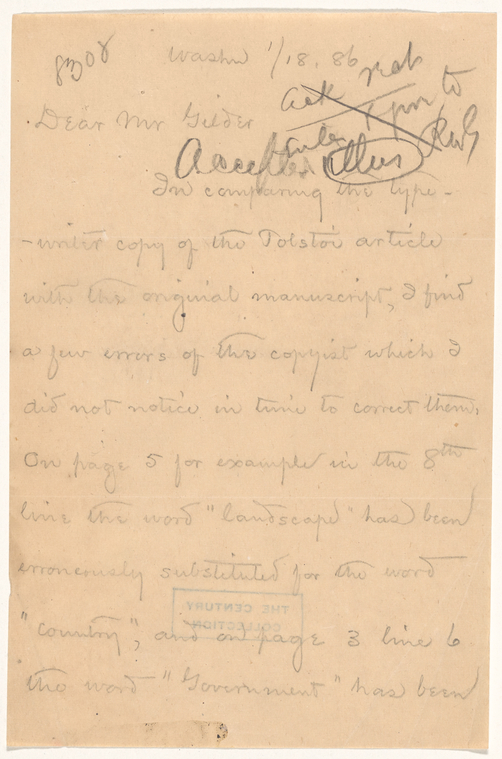 8308
Washn 1/18, 86
ack
Dear Mr Gilder
RWG
Accepted
Illus
In comparing the type-
-writer copy of the Tolstoi article
with the original manuscript, I find
a few errors of the copyist which I
did not notice in time to correct them.
On page 5 for example in the 8th
line the word "landscape" has been
erroneously substituted for the word
THE CENTURY
COLLECTION
"country", and on page 3 line 6
the word "Government" has been